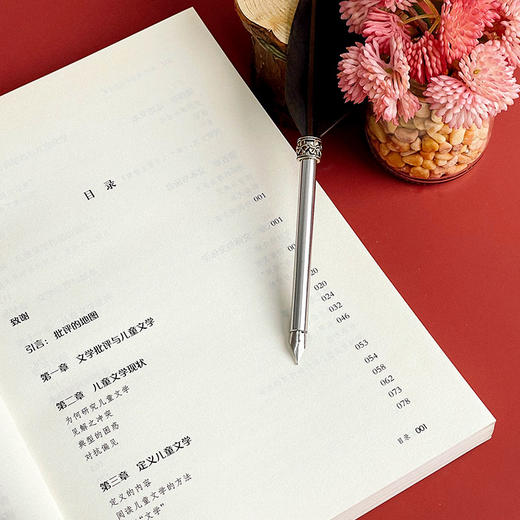 目 录
致谢 001
引言：批评的地图 001
第一章 文学批评与儿童文学
第二章 儿童文学现状 020
为何研究儿童文学 020
见解之冲突 024
典型的困惑 032
对抗偏见 046
第三章 定义儿童文学 053
定义的内容 054
阅读儿童文学的方法 058
“文学” 062
073
078
目录 001